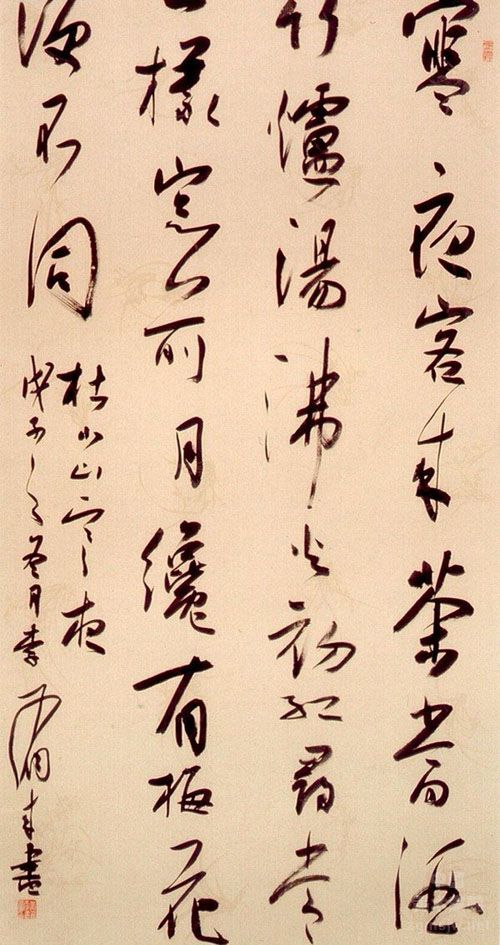 寒夜客來茶當酒
竹爐湯沸火初紅尋常
一樣窗前月纔有梅花
便不同
杜小山寒夜
戊子之冬月李